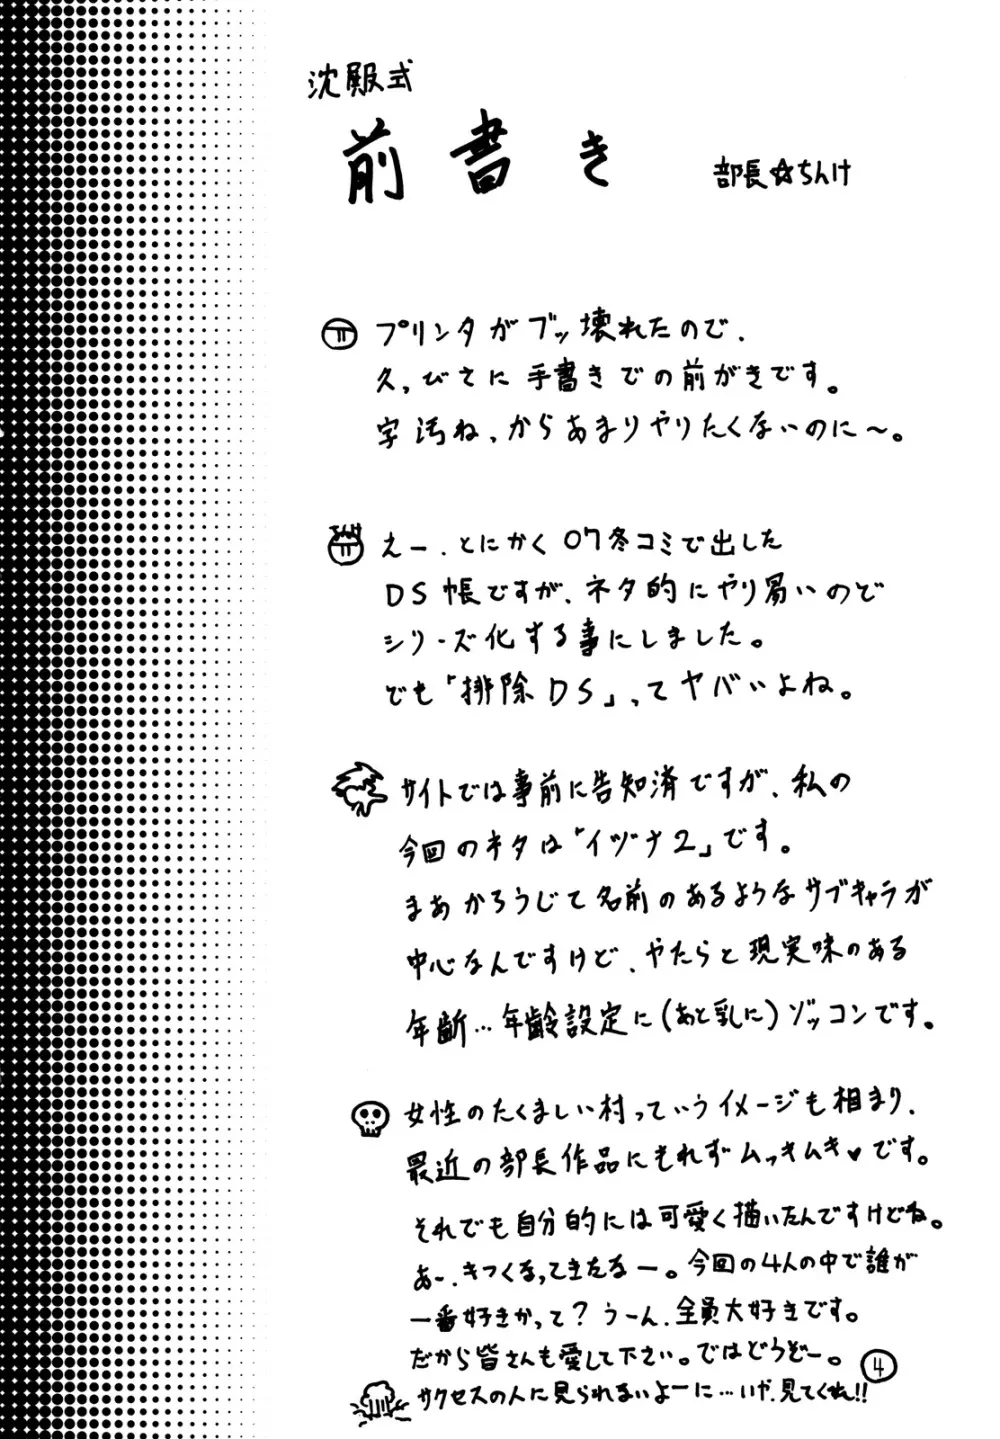 沈殿式
前書き
部長☆ちんけ
プリンタがブッ壊れたので、
久っびさに手書きでの前がきです。
字汚ね、からあまりやりたくないのに〜。
えー、とにかく07冬コミで出した
DS帳ですが、ネタ的にやり易いので
シリーズ化する事にしました。
でも「排除DS」ってヤバいよね。
サイトでは事前に告知済ですが、私の
今回のネタは「イヅナ2」です。
まあかろうじて名前のあるようなサブキャラが
中心なんですけど、やたらと現実味のある
年齢…年齢設定に(あと乳に)ゾッコンです。
女性のたくましい村っていうイメージも相まり、
最近の部長作品にもれずムッキムキ♥です。
それでも自分的には可愛く描いたんですけどね。
あー、きつくなってきたなー。今回の4人の中で誰が
一番好きかって?うーん、全員大好きです。
だから皆さんも愛して下さい。ではどうぞー。
4
サクセスの人に見られないよーに…いや、見てくれ!!